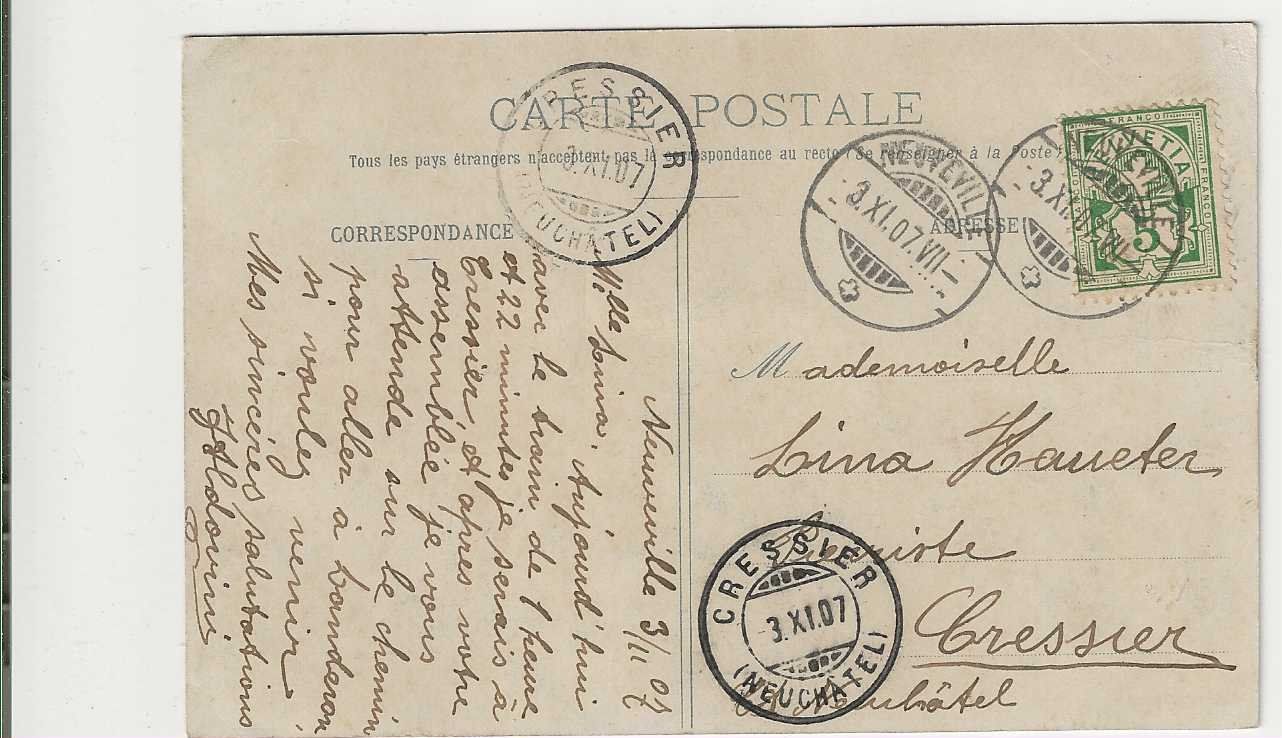 CARTE POSTALE
Tous les pays étrangers n'acceptent pas la correspondance au recto (Se renseigner à la Poste)
CORRESPONDANCE
ADRESSE
CRESSIER
3.XI.07
(NEUCHÂTEL)
NEUVEVILLE
3.XI.07.VII-
NEUVEVILLE
3.XI.07.VII
FRANCO
HELVETIA
FRANCO
5
Neuveville 3/11 07
Mlle Lina. Aujourd'hui
avec le train de 1 heure
et 22 minutes je serais à
Cressier, et apres votre
assemblée je vous
attende sur le chemin
pour aller à Landeron
si voulez venir.
Mes sincères salutations
Mademoiselle
Lina Haueter
Cressier
Neuchâtel
CRESSIER
3.XI.07
(NEUCHÂTEL)